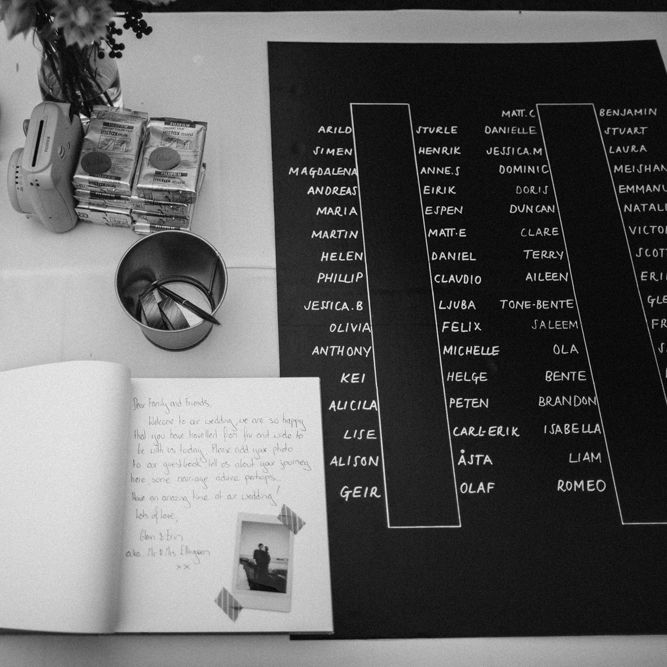 FUJIFILM
instax mini
ARILD
SIMEN
MAGDALENA
ANDREAS
MARIA
MARTIN
HELEN
PHILLIP
JESSICA.B
OLIVIA
ANTHONY
KEI
ALICILA
LISE
ALISON
GEIR
STURLE
HENRIK
ANNE.S
EIRIK
ESPEN
MATT.E
DANIEL
CLAUDIO
LJUBA
FELIX
MICHELLE
HELGE
PETEN
CARL-ERIK
ÅSTA
OLAF
MATT.C
DANIELLE
JESSICA.M
DOMINIC
DORIS
DUNCAN
CLARE
TERRY
AILEEN
TONE-BENTE
SALEEM
OLA
BENTE
BRANDON
ISABELLA
LIAM
ROMEO
BENJAMIN
STUART
LAURA
MEISHAN
EMMANU
NATALI
VICTO
SCOT
ERI
GLE
FR
Dear Family and Friends,
Welcome to our wedding, we are so happy
that you have travelled from far and wide to
be with us today. Please add your photo
to our guestbook, tell us about your journey
here, some marriage advice perhaps...
Have an amazing time at our wedding!
Lots of love,
Glen & Erin
a.k.a. Mr & Mrs Ellingsen
xx